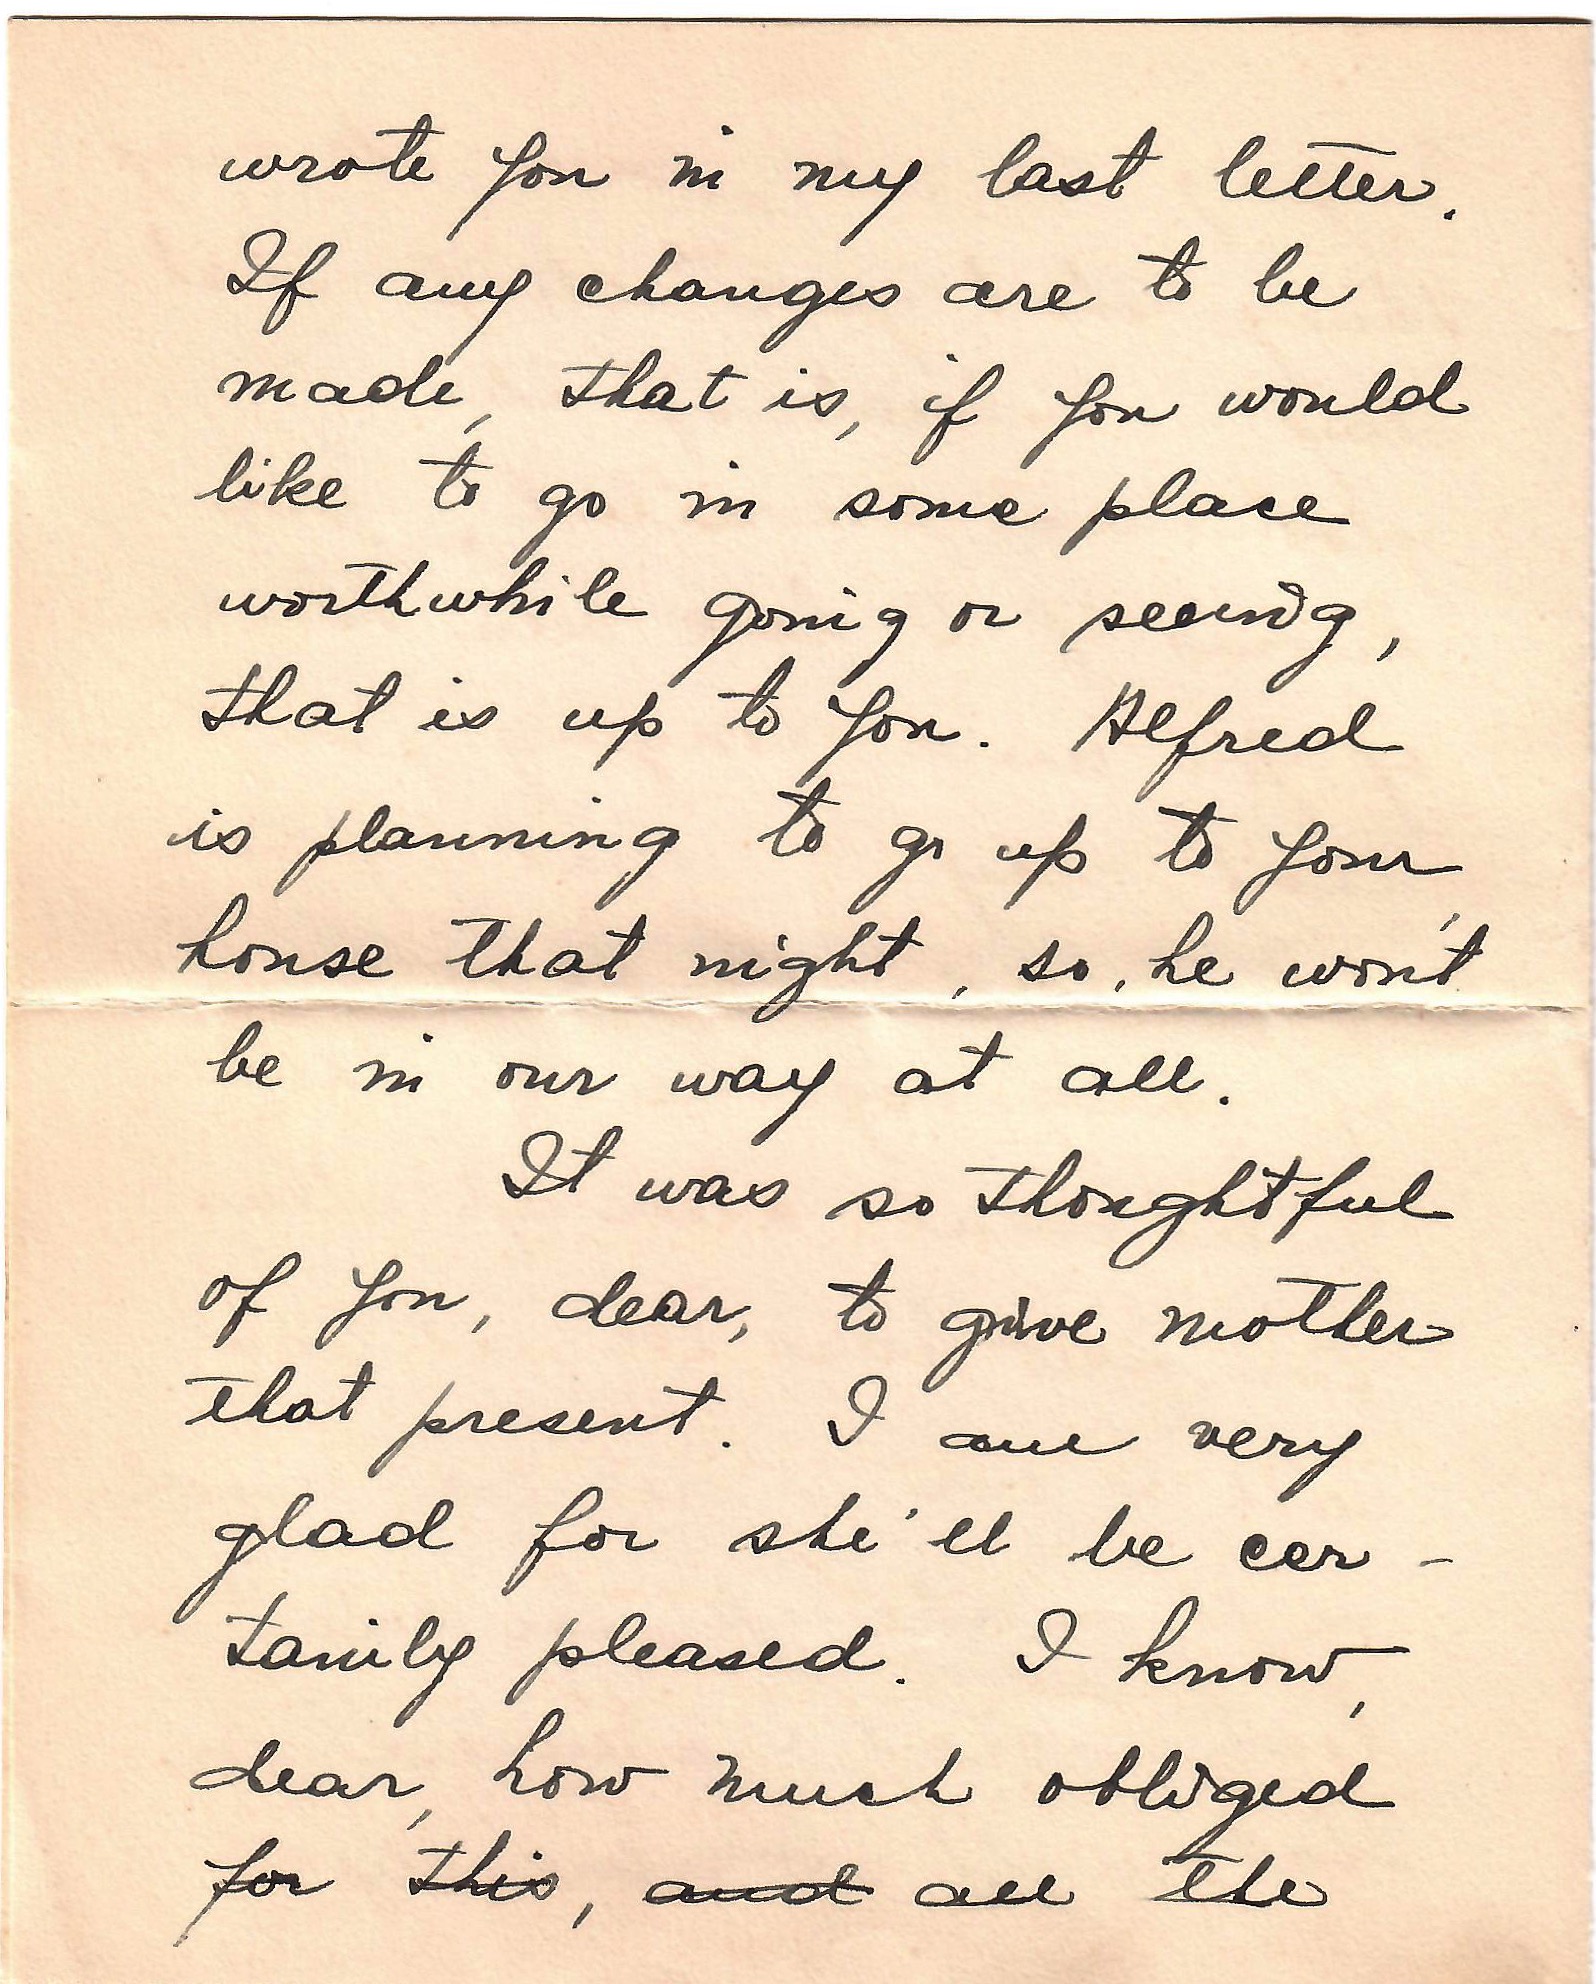 wrote you in my last letter.
If any changes are to be
made, that is, if you would
like to go in some place
worthwhile going or seeing,
that is up to you. Alfred
is planning to go up to your
house that night, so, he won't
be in our way at all.
It was so thoughtful
of you, dear, to give mother
that present. I am very
glad for she'll be cer-
tainly pleased. I know,
dear, how much obliged
for this, and all the